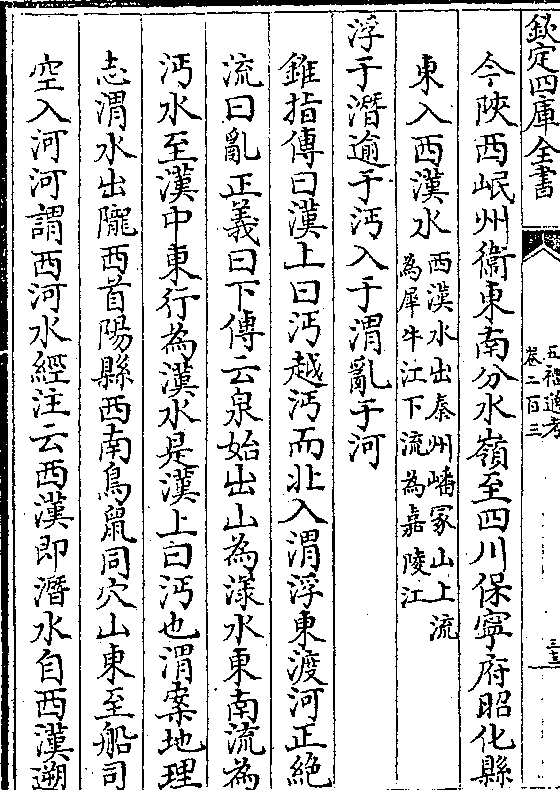 欽定四庫全書
五禮通考
卷二百三
三三
今陜西岷州衞東南分水嶺至四川保寧府昭化縣
東入西漢水
西漢水出秦州嶓冢山上流
為犀牛江下流為嘉陵江
浮于潛逾于沔入于渭亂于河
錐指傳曰漢上曰沔越沔而北入渭浮東渡河正絶
流曰亂正義曰下傳云泉始出山為漾水東南流為
沔水至漢中東行為漢水是漢上曰沔也渭案地理
志渭水出隴西首陽縣西南鳥鼠同穴山東至船司
空入河河謂西河水經注云西漢即潛水自西漢遡